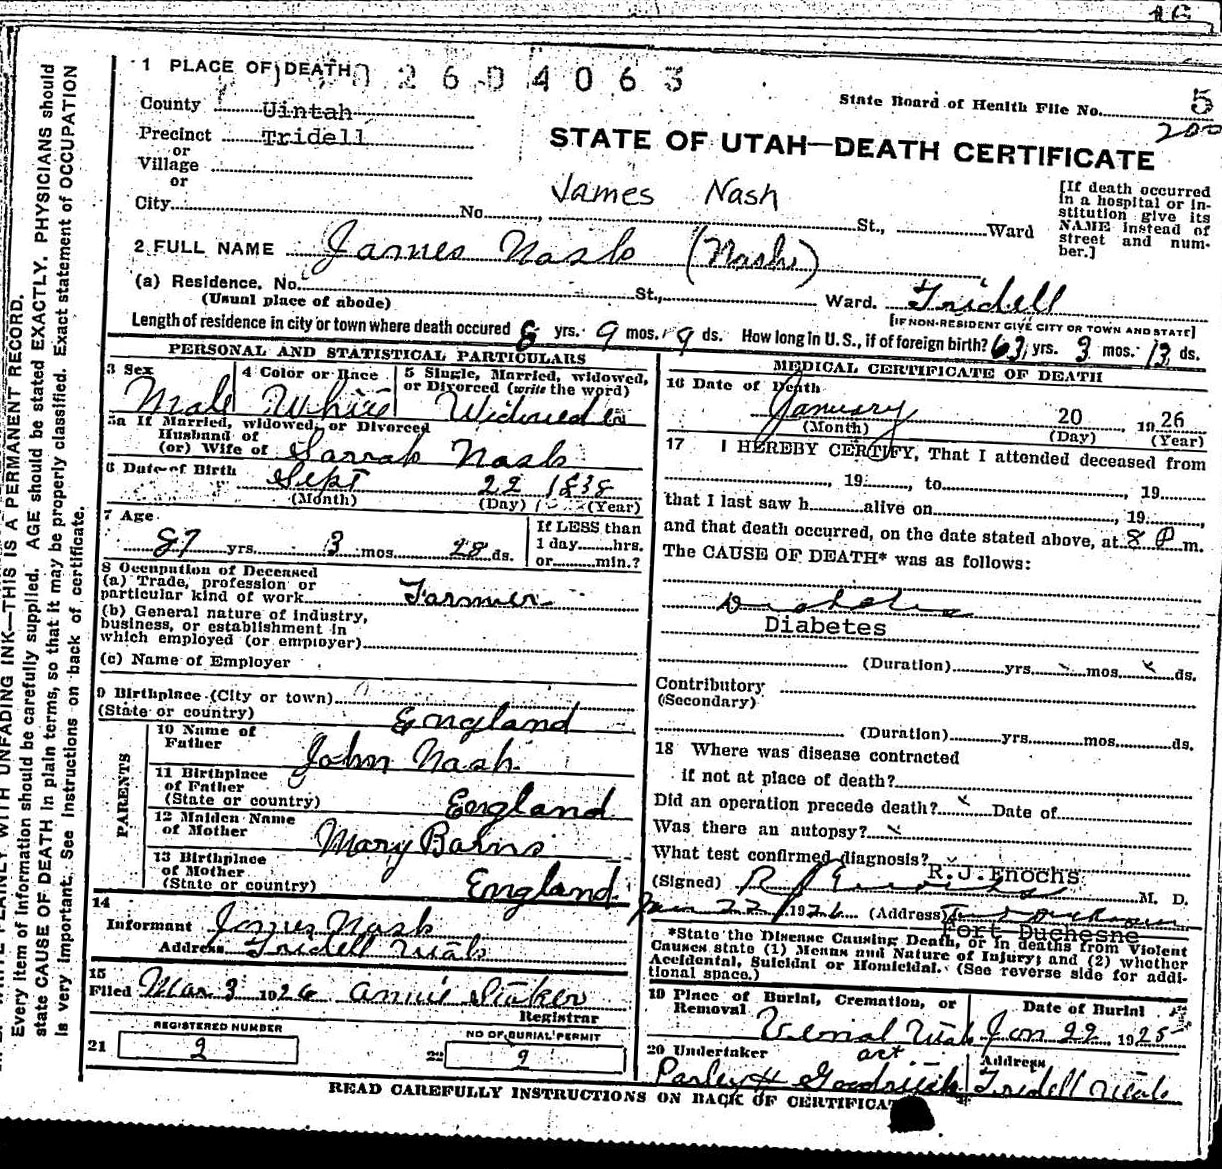 1 PLACE OF DEATH 26D4063
County Uintah
State Board of Health File No. 5
200
Precinct Tridell
or
Village
or
City No. St., Ward
STATE OF UTAH—DEATH CERTIFICATE
James Nash
[If death occurred
in a hospital or in-
stitution give its
NAME instead of
street and num-
ber.]
2 FULL NAME James Nash (Nash)
(a) Residence. No. St., Ward. Tridell
(Usual place of abode)
[IF NON-RESIDENT GIVE CITY OR TOWN AND STATE]
Length of residence in city or town where death occured 8 yrs. 9 mos. 9 ds. How long in U.S., if of foreign birth? 63 yrs. 3 mos. 13 ds.
PERSONAL AND STATISTICAL PARTICULARS
3 Sex
Male
4 Color or Race
White
5 Single, Married, widowed,
or Divorced (write the word)
Widowed
5a If Married, widowed, or Divorced
Husband of
(or) Wife of Sarrah Nash
6 Date of Birth Sept 22 1838
(Month) (Day) (Year)
7 Age
87 yrs. 3 mos. 28 ds.
If LESS than
1 day hrs.
or min.?
8 Occupation of Deceased
(a) Trade, profession or
particular kind of work Farmer
(b) General nature of industry,
business, or establishment in
which employed (or employer)
(c) Name of Employer
9 Birthplace (City or town)
(State or country) England
PARENTS
10 Name of
Father John Nash
11 Birthplace
of Father
(State or country) England
12 Maiden Name
of Mother Mary Barns
13 Birthplace
of Mother
(State or country) England
14
Informant James Nash
Address Tridell Utah
15
Filed Mar 3 1926 Annie
Registrar
REGISTERED NUMBER
21 2
NO OF BURIAL PERMIT
22 2
MEDICAL CERTIFICATE OF DEATH
16 Date of Death
January 20 1926
(Month) (Day) (Year)
17 I HEREBY CERTIFY, That I attended deceased from
, 19 , to , 19
that I last saw h alive on , 19 ,
and that death occurred, on the date stated above, at 8 P m.
The CAUSE OF DEATH* was as follows:
Diabetes
Diabetes
(Duration) yrs. mos. ds.
Contributory
(Secondary)
(Duration) yrs. mos. ds.
18 Where was disease contracted
if not at place of death?
Did an operation precede death? Date of
Was there an autopsy?
What test confirmed diagnosis?
R.J.Enochs
(Signed) R J Enochs M. D.
Jan 22, 1926 (Address) Fort Duchesne
Fort Duchesne
*State the Disease Causing Death, or in deaths from Violent
Causes state (1) Means and Nature of Injury; and (2) whether
Accidental, Suicidal or Homicidal. (See reverse side for addi-
tional space.)
19 Place of Burial, Cremation, or
Removal
Vernal Utah
Date of Burial
Jan 22, 1925
20 Undertaker act
Parley H Goodrich
Address
Tridell Utah
READ CAREFULLY INSTRUCTIONS ON BACK OF CERTIFICAT
WRITE PLAINLY WITH UNFADING INK—THIS IS A PERMANENT RECORD.
Every item of Information should be carefully supplied. AGE should be stated EXACTLY. PHYSICIANS should
state CAUSE OF DEATH in plain terms, so that it may be properly classified. Exact statement of OCCUPATION
is very important. See instructions on back of certificate.